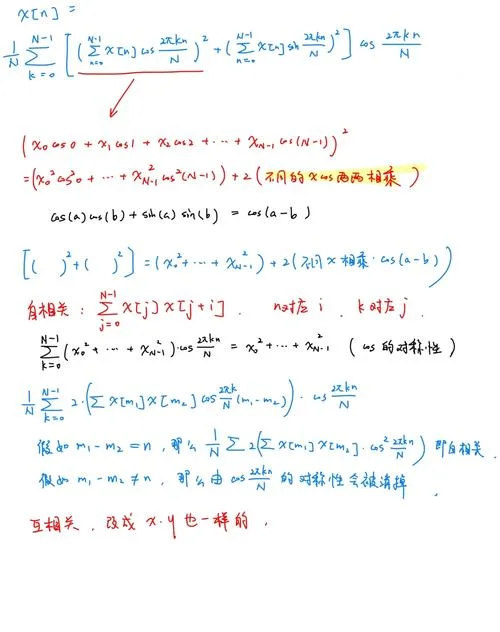 x[n] =
1/N ∑_{k=0}^{N-1} [ ( ∑_{n=0}^{N-1} x[n] cos 2πkn/N )² + ( ∑_{n=0}^{N-1} x[n] sin 2πkn/N )² ] cos 2πkn/N
( x₀ cos0 + x₁ cos1 + x₂ cos2 + ⋯ + x_{N-1} cos(N-1) )²
= (x₀² cos²0 + ⋯ + x_{N-1}² cos²(N-1)) + 2 ( 不同的 xcos 两两相乘 )
cos(a) cos(b) + sin(a) sin(b) = cos(a-b)
[ ( )² + ( )² ] = (x₀² + ⋯ + x_{N-1}²) + 2 ( 不同 x 相乘 · cos(a-b) )
自相关 : ∑_{j=0}^{N-1} x[j] x[j+i] . n对应 i . k对应 j .
∑_{k=0}^{N-1} (x₀² + ⋯ + x_{N-1}²) · cos 2πkn/N = x₀² + ⋯ + x_{N-1}² ( cos 的对称性 )
1/N ∑_{k=0}^{N-1} 2 · ( ∑ x[m₁] x[m₂] cos 2πk/N (m₁-m₂) ) · cos 2πkn/N
假如 m₁-m₂ = n , 那么 1/N ∑ 2( ∑ x[m₁] x[m₂] · cos² 2πkn/N ) 即自相关 .
假如 m₁-m₂ ≠ n , 那么由 cos 2πkn/N 的对称性会被消掉 .
互相关 . 改成 x·y 也一样的 .